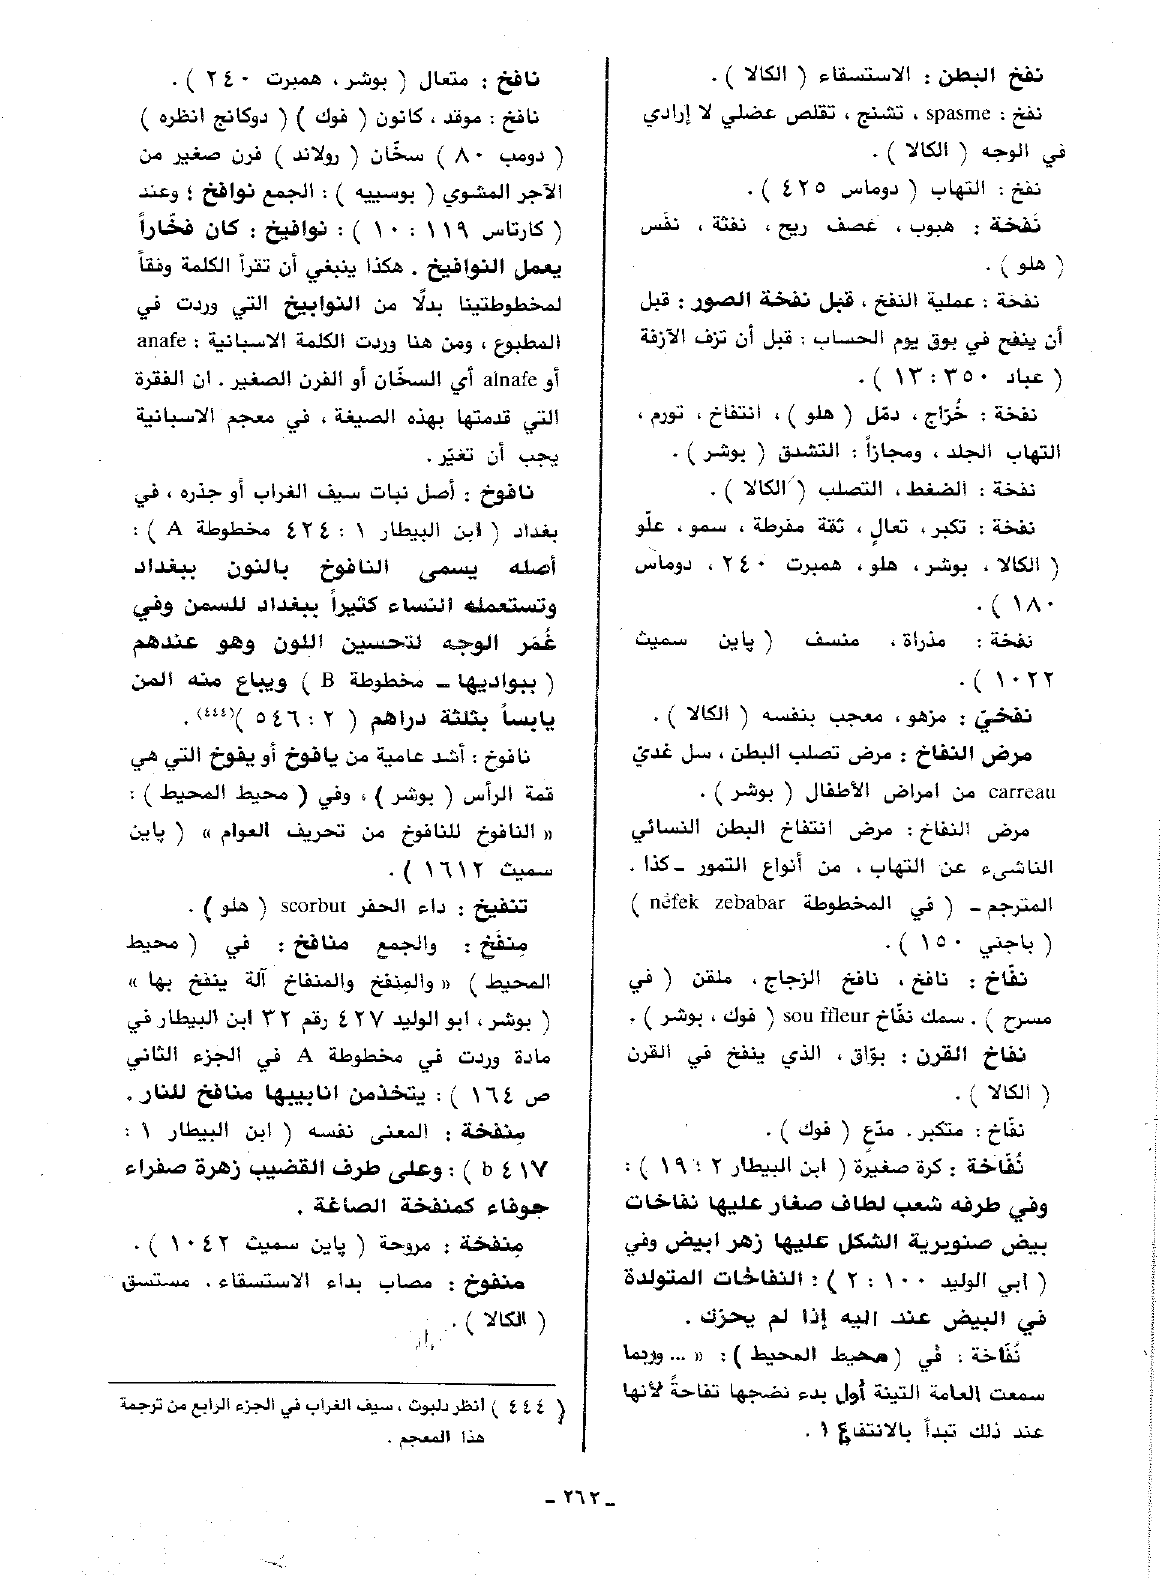 نفخ البطن : الاستسقاء ( الكالا ) .
نفخ : spasme ، تشنج ، تقلص عضلي لا إرادي
في الوجه ( الكالا ) .
نفخ : التهاب ( دوماس ٤٢٥ ) .
نَفخة : هبوب ، عصف ريح ، نفثة ، نفَس
( هلو ) .
نفخة : عملية النفخ ، قبل نفخة الصور : قبل
أن ينفح في بوق يوم الحساب : قبل أن تزف الآزفة
( عباد ٣٥٠ : ١٣ ) .
نفخة : خُرّاج ، دمّل ( هلو ) ، انتفاخ ، تورم ،
التهاب الجلد ، ومجازاً : التشدق ( بوشر ) .
نفخة : الضغط ، التصلب ( الكالا ) .
نفخة : تكبر ، تعالٍ ، ثقة مفرطة ، سمو ، علّو
( الكالا ، بوشر ، هلو ، همبرت ٢٤٠ ، دوماس
١٨٠ ) .
نفخة : مذراة ، منسف ( پاين سميث
١٠٢٢ ) .
نفخيّ : مزهو ، معجب بنفسه ( الكالا ) .
مرض النفاخ : مرض تصلب البطن ، سل غديّ
carreau من امراض الأطفال ( بوشر ) .
مرض النفاخ : مرض انتفاخ البطن النسائي
الناشىء عن التهاب ، من أنواع التمور ــ كذا .
المترجم ــ ( في المخطوطة néfek zebabar )
( باجني ١٥٠ ) .
نفّاخ : نافخ ، نافخ الزجاج ، ملقن ( في
مسرح ) . سمك نفّاخ sou ffleur ( فوك ، بوشر ) .
نفاخ القرن : بوّاق ، الذي ينفخ في القرن
( الكالا ) .
نفّاخ : متكبر . مدّعٍ ( فوك ) .
نُفّاخة : كرة صغيرة ( ابن البيطار ٢ : ١٩ ) :
وفي طرفه شعب لطاف صغار عليها نفاخات
بيض صنوبرية الشكل عليها زهر ابيض وفي
( ابي الوليد ١٠٠ : ٢ ) : النفاخات المتولدة
في البيض عند اليه إذا لم يحرّك .
نُفّاخة : في ( محيط المحيط ) : « ... وربما
سمعت العامة التينة أول بدء نضجها تفاحةً لأنها
عند ذلك تبدأ بالانتفاخ .
نافخ : متعال ( بوشر ، همبرت ٢٤٠ ) .
نافخ : موقد ، كانون ( فوك ) ( دوكانج انظره )
( دومب ٨٠ ) سخّان ( رولاند ) فرن صغير من
الآجر المشوي ( بوسييه ) : الجمع نوافخ ؛ وعند
( كارتاس ١١٩ : ١٠ ) : نوافيخ : كان فخّاراً
يعمل النوافيخ . هكذا ينبغي أن تقرأ الكلمة وفقاً
لمخطوطتينا بدلًا من النوابيخ التي وردت في
المطبوع ، ومن هنا وردت الكلمة الاسبانية : anafe
أو alnafe أي السخّان أو الفرن الصغير . ان الفقرة
التي قدمتها بهذه الصيغة ، في معجم الاسبانية
يجب أن تغيّر .
نافوخ : أصل نبات سيف الغراب أو جذره ، في
بغداد ( ابن البيطار ١ : ٤٢٤ مخطوطة A ) :
أصله يسمى النافوخ بالنون ببغداد
وتستعمله النساء كثيراً ببغداد للسمن وفي
غُمَر الوجه لتحسين اللون وهو عندهم
( ببواديها ــ مخطوطة B ) ويباع منه المن
يابساً بثلثة دراهم ( ٢ : ٥٤٦ )(٤٤٤) .
نافوخ : أشد عامية من يافوخ أو يفوخ التي هي
قمة الرأس ( بوشر ) ، وفي ( محيط المحيط ) :
« النافوخ للنافوخ من تحريف العوام » ( پاين
سميث ١٦١٢ ) .
تنفيخ : داء الحفر scorbut ( هلو ) .
مِنفَخ : والجمع منافخ : في ( محيط
المحيط ) « والمِنفخ والمنفاخ آلة ينفخ بها »
( بوشر ، ابو الوليد ٤٢٧ رقم ٣٢ ابن البيطار في
مادة وردت في مخطوطة A في الجزء الثاني
ص ١٦٤ ) : يتخذمن انابيبها منافخ للنار .
مِنفخة : المعنى نفسه ( ابن البيطار ١ :
٤١٧ b ) : وعلى طرف القضيب زهرة صفراء
جوفاء كمنفخة الصاغة .
مِنفخة : مروحة ( پاين سميث ١٠٤٢ ) .
منفوخ : مصاب بداء الاستسقاء . مستسق
( الكالا ) .
( ٤٤٤ ) انظر دلبوث ، سيف الغراب في الجزء الرابع من ترجمة
هذا المعجم .
ــ ٢٦٢ ــ